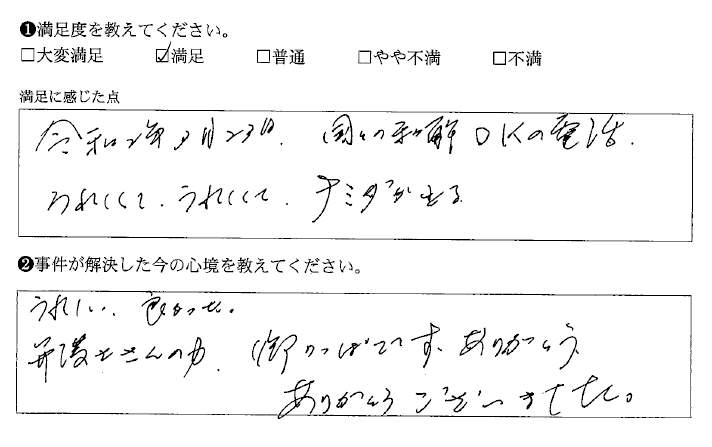 ❶満足度を教えてください。
□大変満足 ☑満足 □普通 □やや不満 □不満
満足に感じた点
令和2年9月23日、国との和解OKの電話、
うれしくて、うれしくて、ナミダが出る
❷事件が解決した今の心境を教えてください。
うれしい、良かった。
弁護士さんの力、御りっぱです、ありがとう
ありがとうございました。